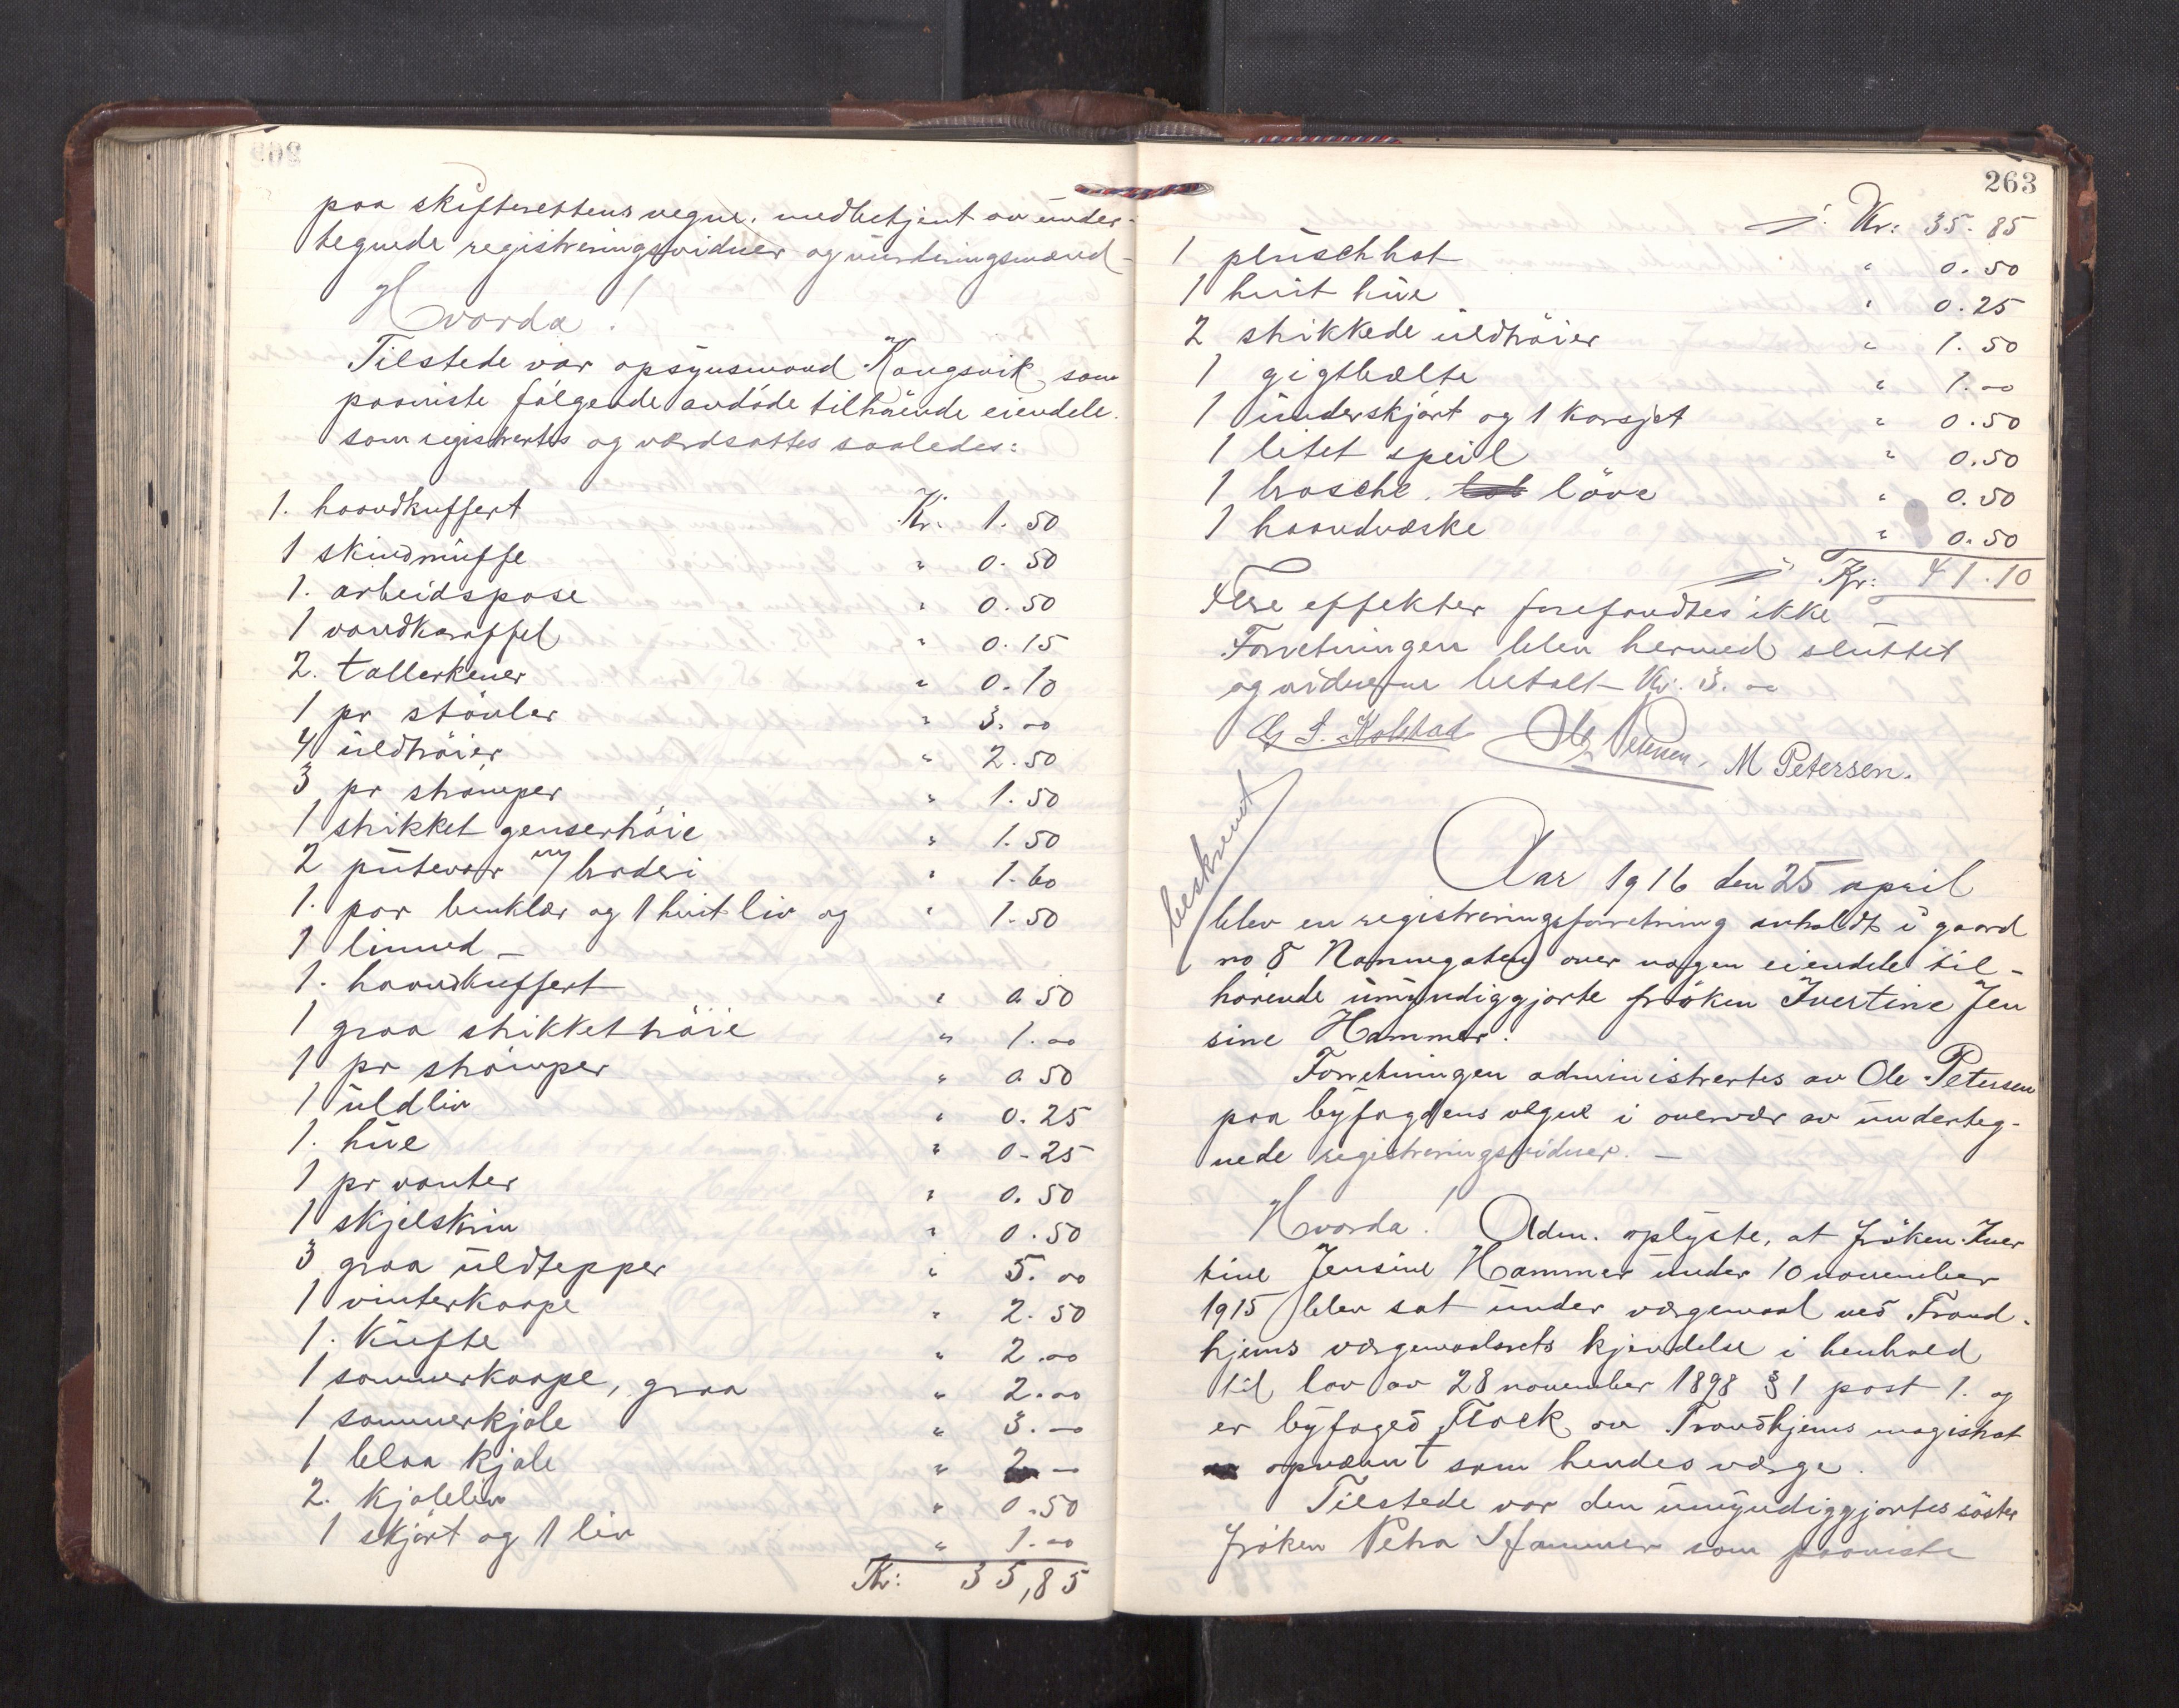 paa skifterettens vegne. medbetjent av under-
tegnede registreringsvidner og vurderingsmænd-
Hvorda!
Tilstede var opsynsmand Kongsvik som
paaviste følgende avdøde tilhørende eiendele.
som registrertes og værdsattes saaledes:
1. haandkuffert Kr: 1.50
1 skindmuffe " 0.50
1. arbeidspose " 0.50
1 vandkaraffel " 0.15
2. tallerkener " 0.10
1 pr støvler " 3.00
4 uldtrøier " 2.50
3 pr strømper " 1.50
1 strikket gensertrøie " 1.50
2 putevar m/ broderi " 1.60
1. par benklær og 1 hvit liv og " 1.50
1 linned -
1. haandkuffert " 0.50
1 graa strikket trøie " 1.00
1 pr strømper " 0.50
1 uldliv " 0.25
1. hue " 0.25
1 pr vanter " 0.50
1 skjelskrin " 0.50
3 graa uldtepper " 5.00
1 vinterkaape " 2.50
1. Kufte " 2.00
1 sommerkaape, graa " 2.00
1 sommerkjole " 3.—
1 blaa kjole " 2 —
2. kjoleliv " 0.50
1 skjørt og 1 liv " 1.00
Kr: 35,85
263
Kr: 35.85
1 plüschhat " 0.50
1 hvit hue " 0.25
2 strikkede uldtrøier " 1.50
1 gigtbælte " 1.00
1 underskjørt og 1 korsjet " 0.50
1 litet speil " 0.50
1 brosche. løve " 0.50
1 haandvæske " 0.50
Kr: 41.10
Flere effekter forefandtes ikke
Forretningen blev hermed sluttet
og vidnerne betalt Kr. 3.00
Ole Petersen, M Petersen.
beskrevet
Aar 1916 den 25 april
blev en registreringsforretning avholdt i gaard
no 8 Nonnegaten over nogen eiendele til-
hørende umyndiggjorte frøken Ivertine Jen
sine Hammer.
Forretningen administrertes av Ole Petersen
paa byfogdens vegne i overvær av underteg-
nede registreringsvidner. —
Hvorda! Adm. oplyste, at frøken Iver
tine Jensine Hammer under 10 november
1915 blev sat under vergemaal ved Trond-
hjems vergemaalsrets kjendelse i henhold
til lov av 28 november 1898 § 1 post 1. og
er byfoged Flock av Trondhjems magistrat
opnævnt som hendes verge.
Tilstede var den umyndiggjortes søster
frøken Petra Hammer som paaviste